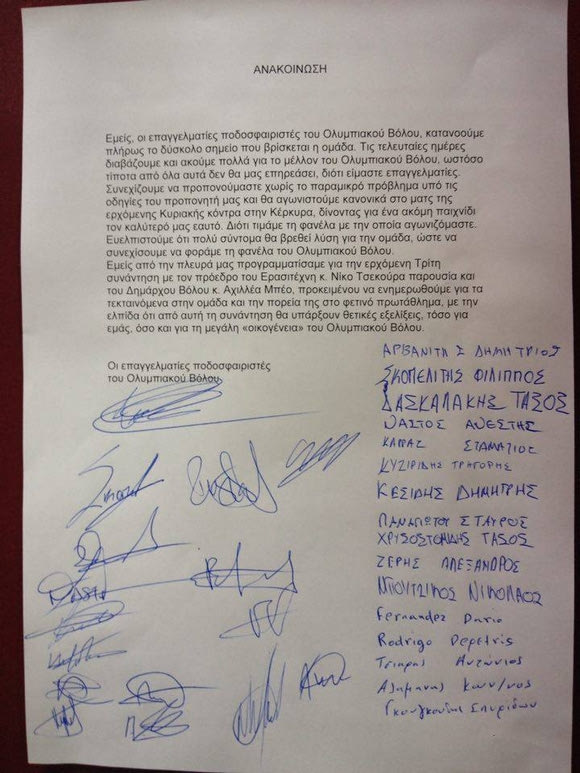 ΑΝΑΚΟΙΝΩΣΗ
Εμείς, οι επαγγελματίες ποδοσφαιριστές του Ολυμπιακού Βόλου, κατανοούμε
πλήρως το δύσκολο σημείο που βρίσκεται η ομάδα. Τις τελευταίες ημέρες
διαβάζουμε και ακούμε πολλά για το μέλλον του Ολυμπιακού Βόλου, ωστόσο
τίποτα από όλα αυτά δεν θα μας επηρεάσει, διότι είμαστε επαγγελματίες.
Συνεχίζουμε να προπονούμαστε χωρίς το παραμικρό πρόβλημα υπό τις
οδηγίες του προπονητή μας και θα αγωνιστούμε κανονικά στο ματς της
ερχόμενης Κυριακής κόντρα στην Κέρκυρα, δίνοντας για ένα ακόμη παιχνίδι
τον καλύτερό μας εαυτό. Διότι τιμάμε τη φανέλα με την οποία αγωνιζόμαστε.
Ευελπιστούμε ότι πολύ σύντομα θα βρεθεί λύση για την ομάδα, ώστε να
συνεχίσουμε να φοράμε τη φανέλα του Ολυμπιακού Βόλου.
Εμείς από την πλευρά μας προγραμματίσαμε για την ερχόμενη Τρίτη
συνάντηση με τον πρόεδρο του Ερασιτέχνη κ. Νίκο Τσεκούρα παρουσία και
του Δημάρχου Βόλου κ. Αχιλλέα Μπέο, προκειμένου να ενημερωθούμε για τα
τεκταινόμενα στην ομάδα και την πορεία της στο φετινό πρωτάθλημα, με την
ελπίδα ότι από αυτή τη συνάντηση θα υπάρξουν θετικές εξελίξεις, τόσο για
εμάς, όσο και για τη μεγάλη «οικογένεια» του Ολυμπιακού Βόλου.
Οι επαγγελματίες ποδοσφαιριστές
του Ολυμπιακού Βόλου
ΑΡΒΑΝΙΤΗΣ ΔΗΜΗΤΡΙΟΣ
ΣΚΟΠΕΛΙΤΗΣ ΦΙΛΙΠΠΟΣ
ΔΑΣΚΑΛΑΚΗΣ ΤΑΣΟΣ
ΝΑΣΤΟΣ ΑΝΕΣΤΗΣ
ΚΑΠΑΣ ΣΤΑΜΑΤΙΟΣ
ΚΥΖΙΡΙΔΗΣ ΓΡΗΓΟΡΗΣ
ΚΕΣΙΔΗΣ ΔΗΜΗΤΡΗΣ
ΠΑΝΑΓΙΩΤΟΥ ΣΤΑΥΡΟΣ
ΧΡΥΣΟΣΤΟΜΙΔΗΣ ΤΑΣΟΣ
ΖΕΡΗΣ ΑΛΕΞΑΝΔΡΟΣ
ΜΠΟΥΤΣΙΚΟΣ ΝΙΚΟΛΑΟΣ
Fernandez Dario
Rodrigo Depetris
Τσιαρας Αντώνιος
Κων/νος
Γκουγκουδης Σπυρίδων